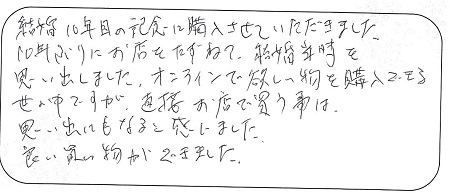 結婚10年目の記念に購入させていただきました。
10年ぶりにお店をたずねて、結婚当時を
思い出しました。オンラインで欲しい物を購入できる
世の中ですが、直接お店で買う事は、
思い出にもなると感じました。
良い買い物ができました。